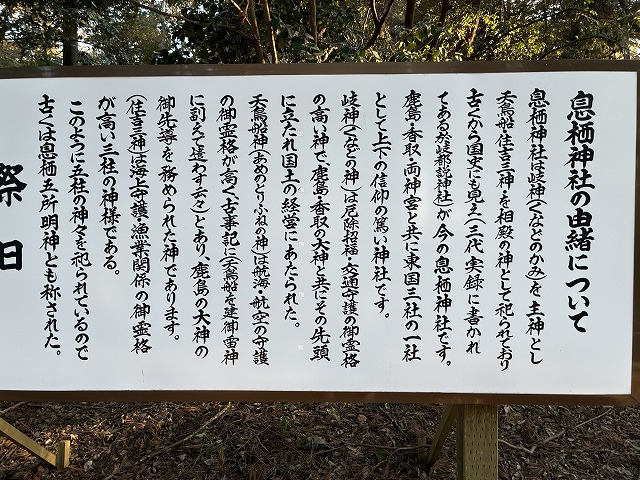 息栖神社の由緒について
息栖神社は岐神(くなどのかみ)を主神とし
天鳥船・住吉三神・を相殿の神として祀られており
古くから国史にも見え(三代実録に書かれ
てある於岐都説神社)が今の息栖神社です。
鹿島・香取・両神宮と共に東国三社の一社
として上下の信仰の篤い神社です。
岐神(くなどの神)は厄除招福・交通守護の御霊格
の高い神で、鹿島・香取の大神と共にその先頭
に立たれ国土の経営にあたられた。
天鳥船神(あめのとりふねの神)は航海・航空の守護
の御霊格が高く古事記に(天鳥船を建御雷神
に副えて遣わす云々)とあり、鹿島の大神の
御先導を務められた神であります。
(住吉三神は海上守護・漁業関係の御霊格
が高い三柱の神様である。
このように五柱の神々を祀られているので
古くは息栖五所明神とも称された。
祭日